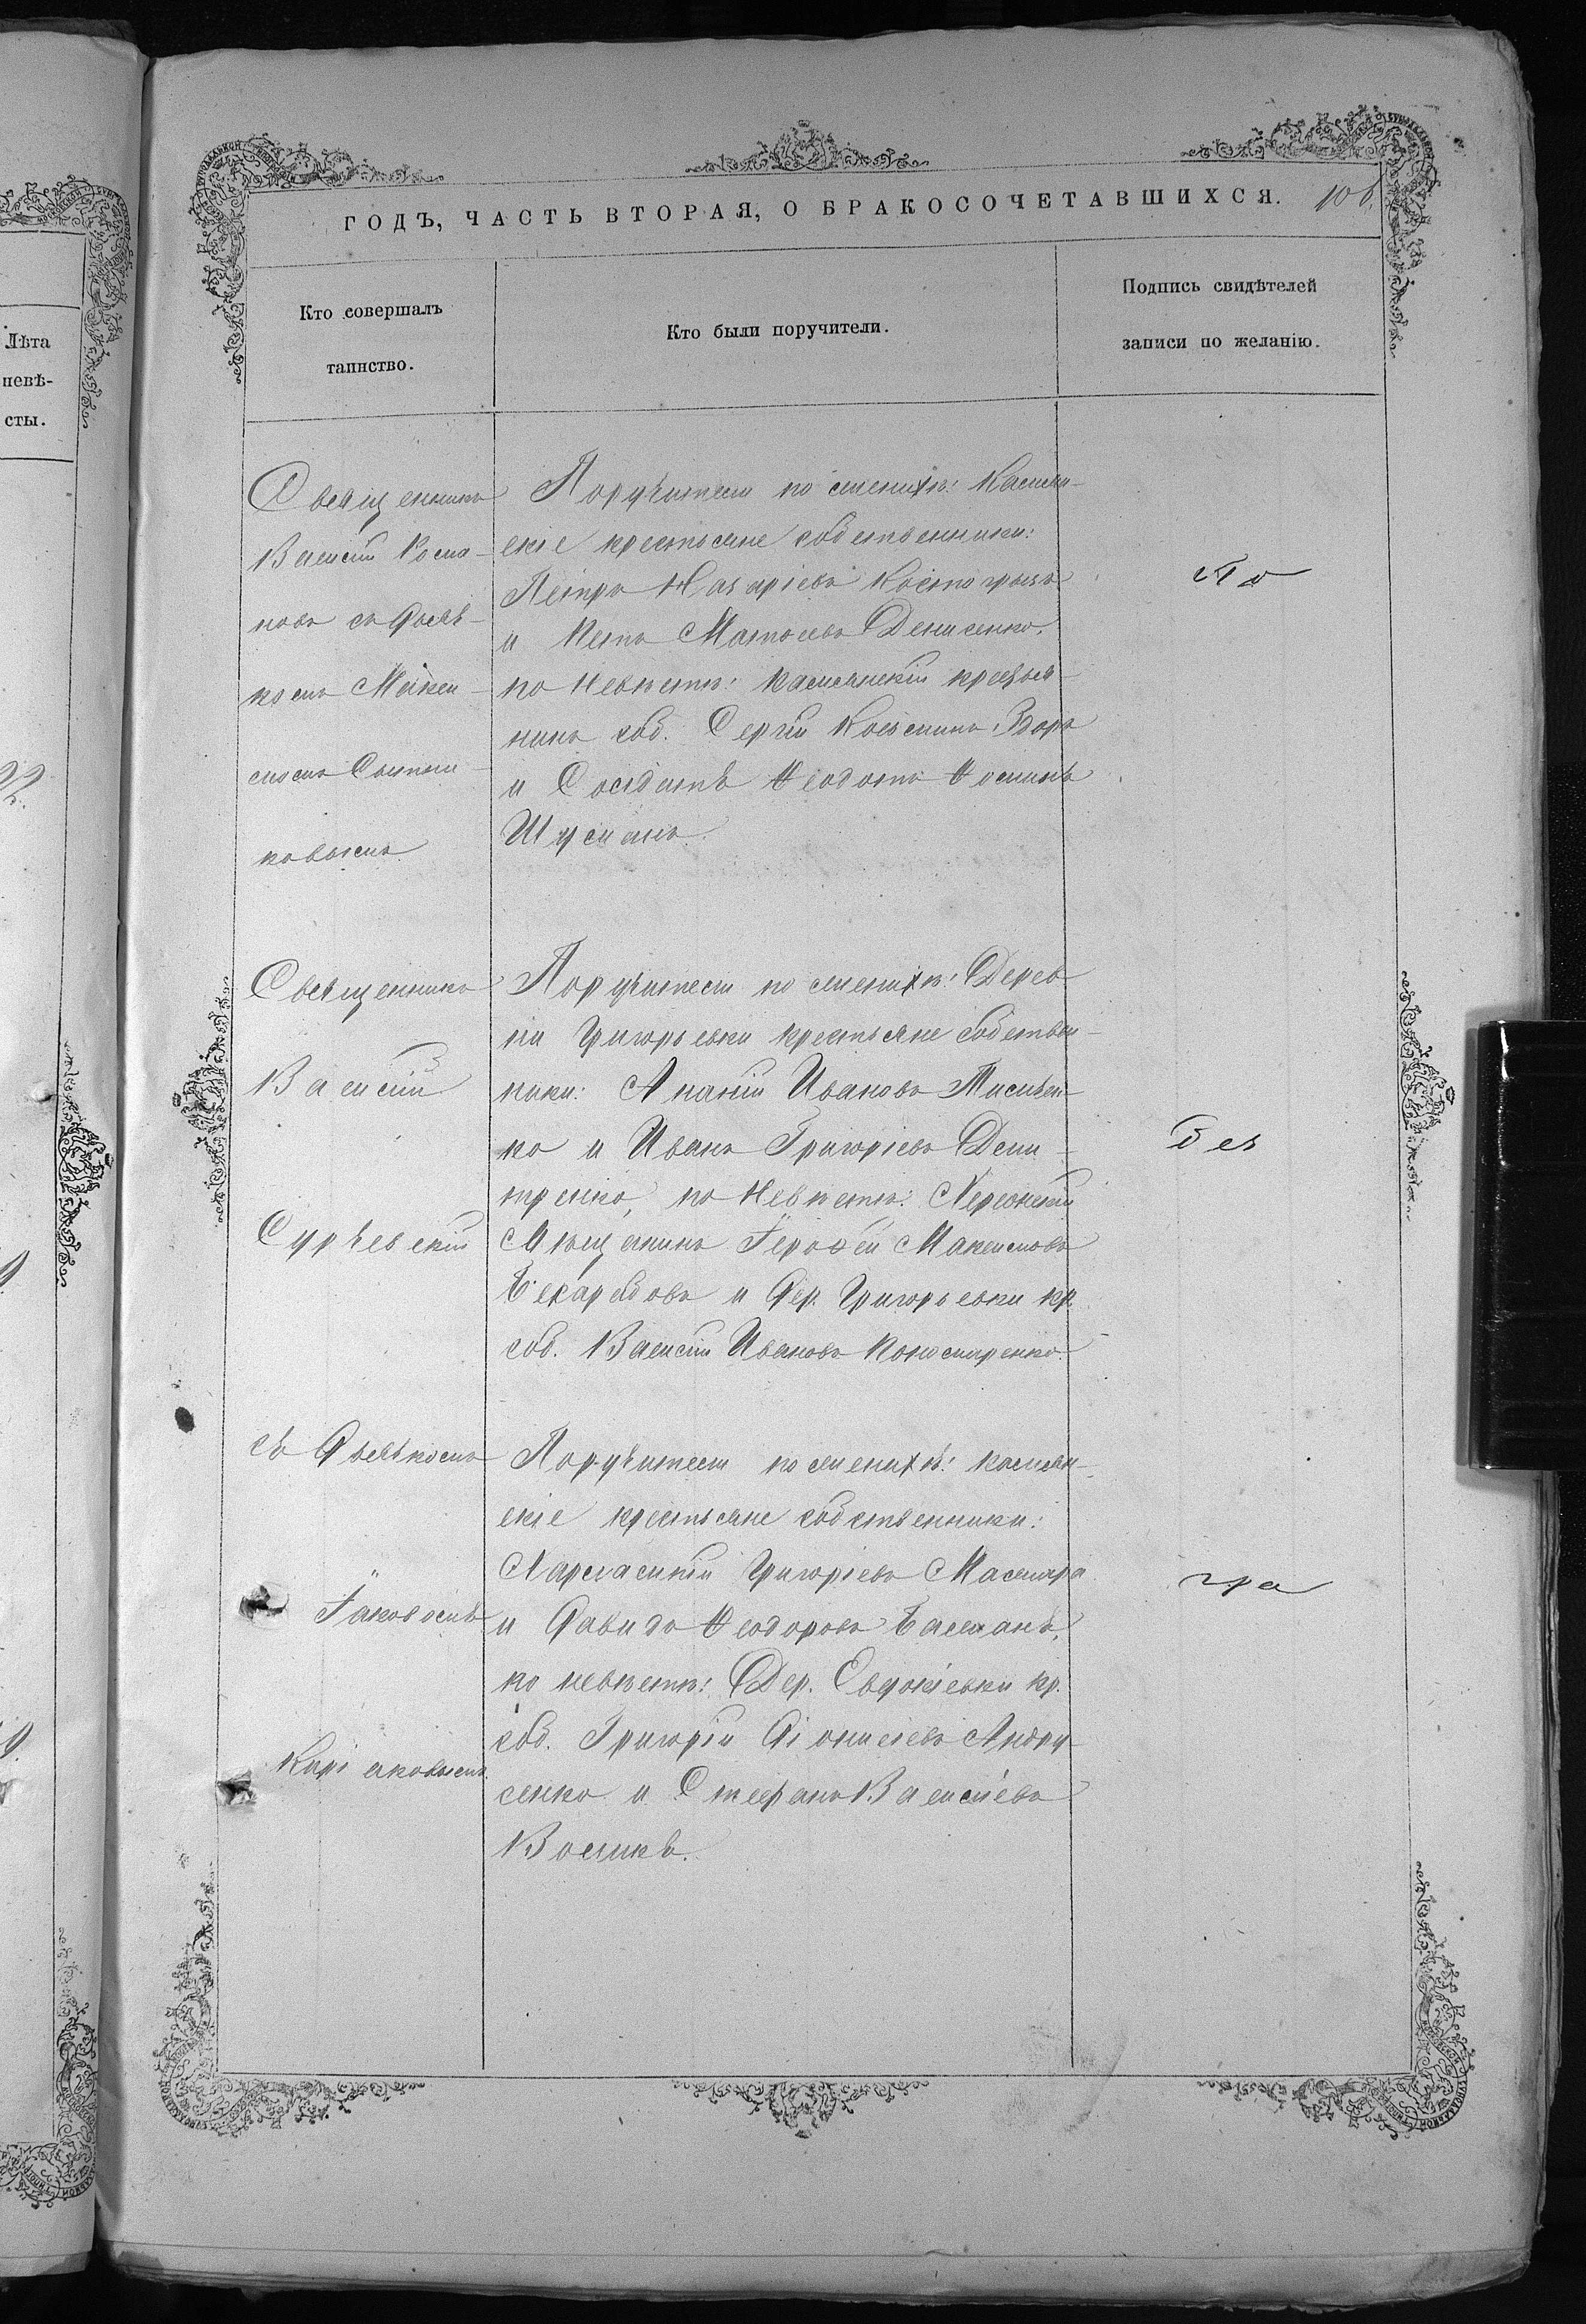 Лѣта
невѣ-
сты.
22.
ГОДЪ, ЧАСТЬ ВТОРАЯ, О БРАКОСОЧЕТАВШИХСЯ.
Кто совершалъ
таинство.
Кто были поручители.
Подпись свидѣтелей
записи по желанію.
Священникъ
Василій Рома-
новъ съ Дьяч-
комъ Макси-
момъ
ковымъ.
Поручители по женихѣ:
скіе крестьяне собственники:
Петръ Назаріевъ Костогрызъ
и Матѳеевъ Денисенко,
по невѣстѣ: крестья-
нинъ соб. Сергій Козьминъ Зоръ
и Солдатъ Ѳеодотъ Ѳоминъ
Шусманъ.
По
Священникъ
Василій
Сурѣевскій
Поручители по женихѣ: Дерев-
ни Григорьевки крестьяне собствен-
ники: Ананій Ивановъ
ко и Иванъ Григоріевъ Дми-
тренко, по невѣстѣ: Херсонскій
Мѣщанинъ Іероѳей Максимовъ
и Дер. Григорьевки кр.
соб. Василій Ивановъ Кономаренко.
без
съ Дьячкомъ
Іаковомъ
Киріаковымъ.
Поручители по женихѣ:
скіе крестьяне собственники:
Харлампій Григоріевъ
и Давидъ Ѳеодоровъ Балжанъ,
по невѣстѣ: Дер. Евдокіевки кр.
соб. Григорій Діонисіевъ Андру-
сенко и Стефанъ Василіевъ
Воликъ.
гра